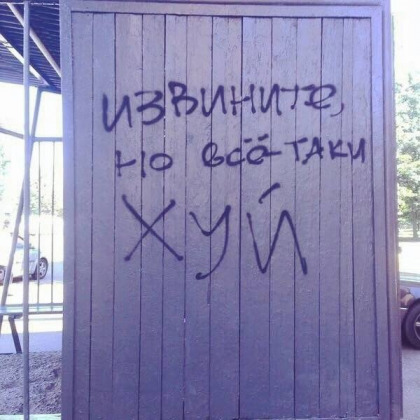 ИЗВИНИТЕ,
НО ВСЁ-ТАКИ
ХУЙ